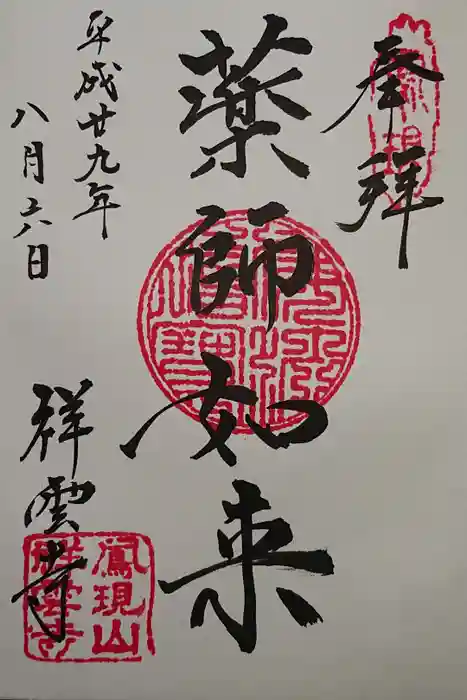 奉拝
薬師如来
平成廿九年
八月六日
祥雲寺
鳳現山
祥雲寺